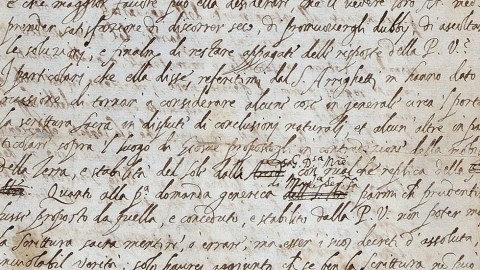 e che maggior fausto può ella desiderare che il veder loro
prender satisfazione di discorrer seco, di promuovergli dubbi, di ascoltar
le soluzioni, e finalm. di restare appagate delle risposte della P. V.ª
I particolari che ella disse, referitimi dal S. Arrighetti m' hanno dato
occasione di tornar' à considerare alcune cose in generale circa 'l portar
la scrittura sacra in dispute di conclusioni naturali, et alcun' altre in par
ticolare sopra il luogo di Giosuè propostoli in contradizione della mobil
della Terra, e stabilità del sole dalla con qualche replica della
Quanto alla p.ª domanda generica di parmi ch' prudentis
fusse proposto da quella, e conceduto, e stabilito dalla P. V. non poter mai
la Scrittura sacra mentire, o errare, ma esser i suoi decreti d' assoluta,
inviolabil verità. solo haurei aggiunto, ch' se ben la Scrittura non può